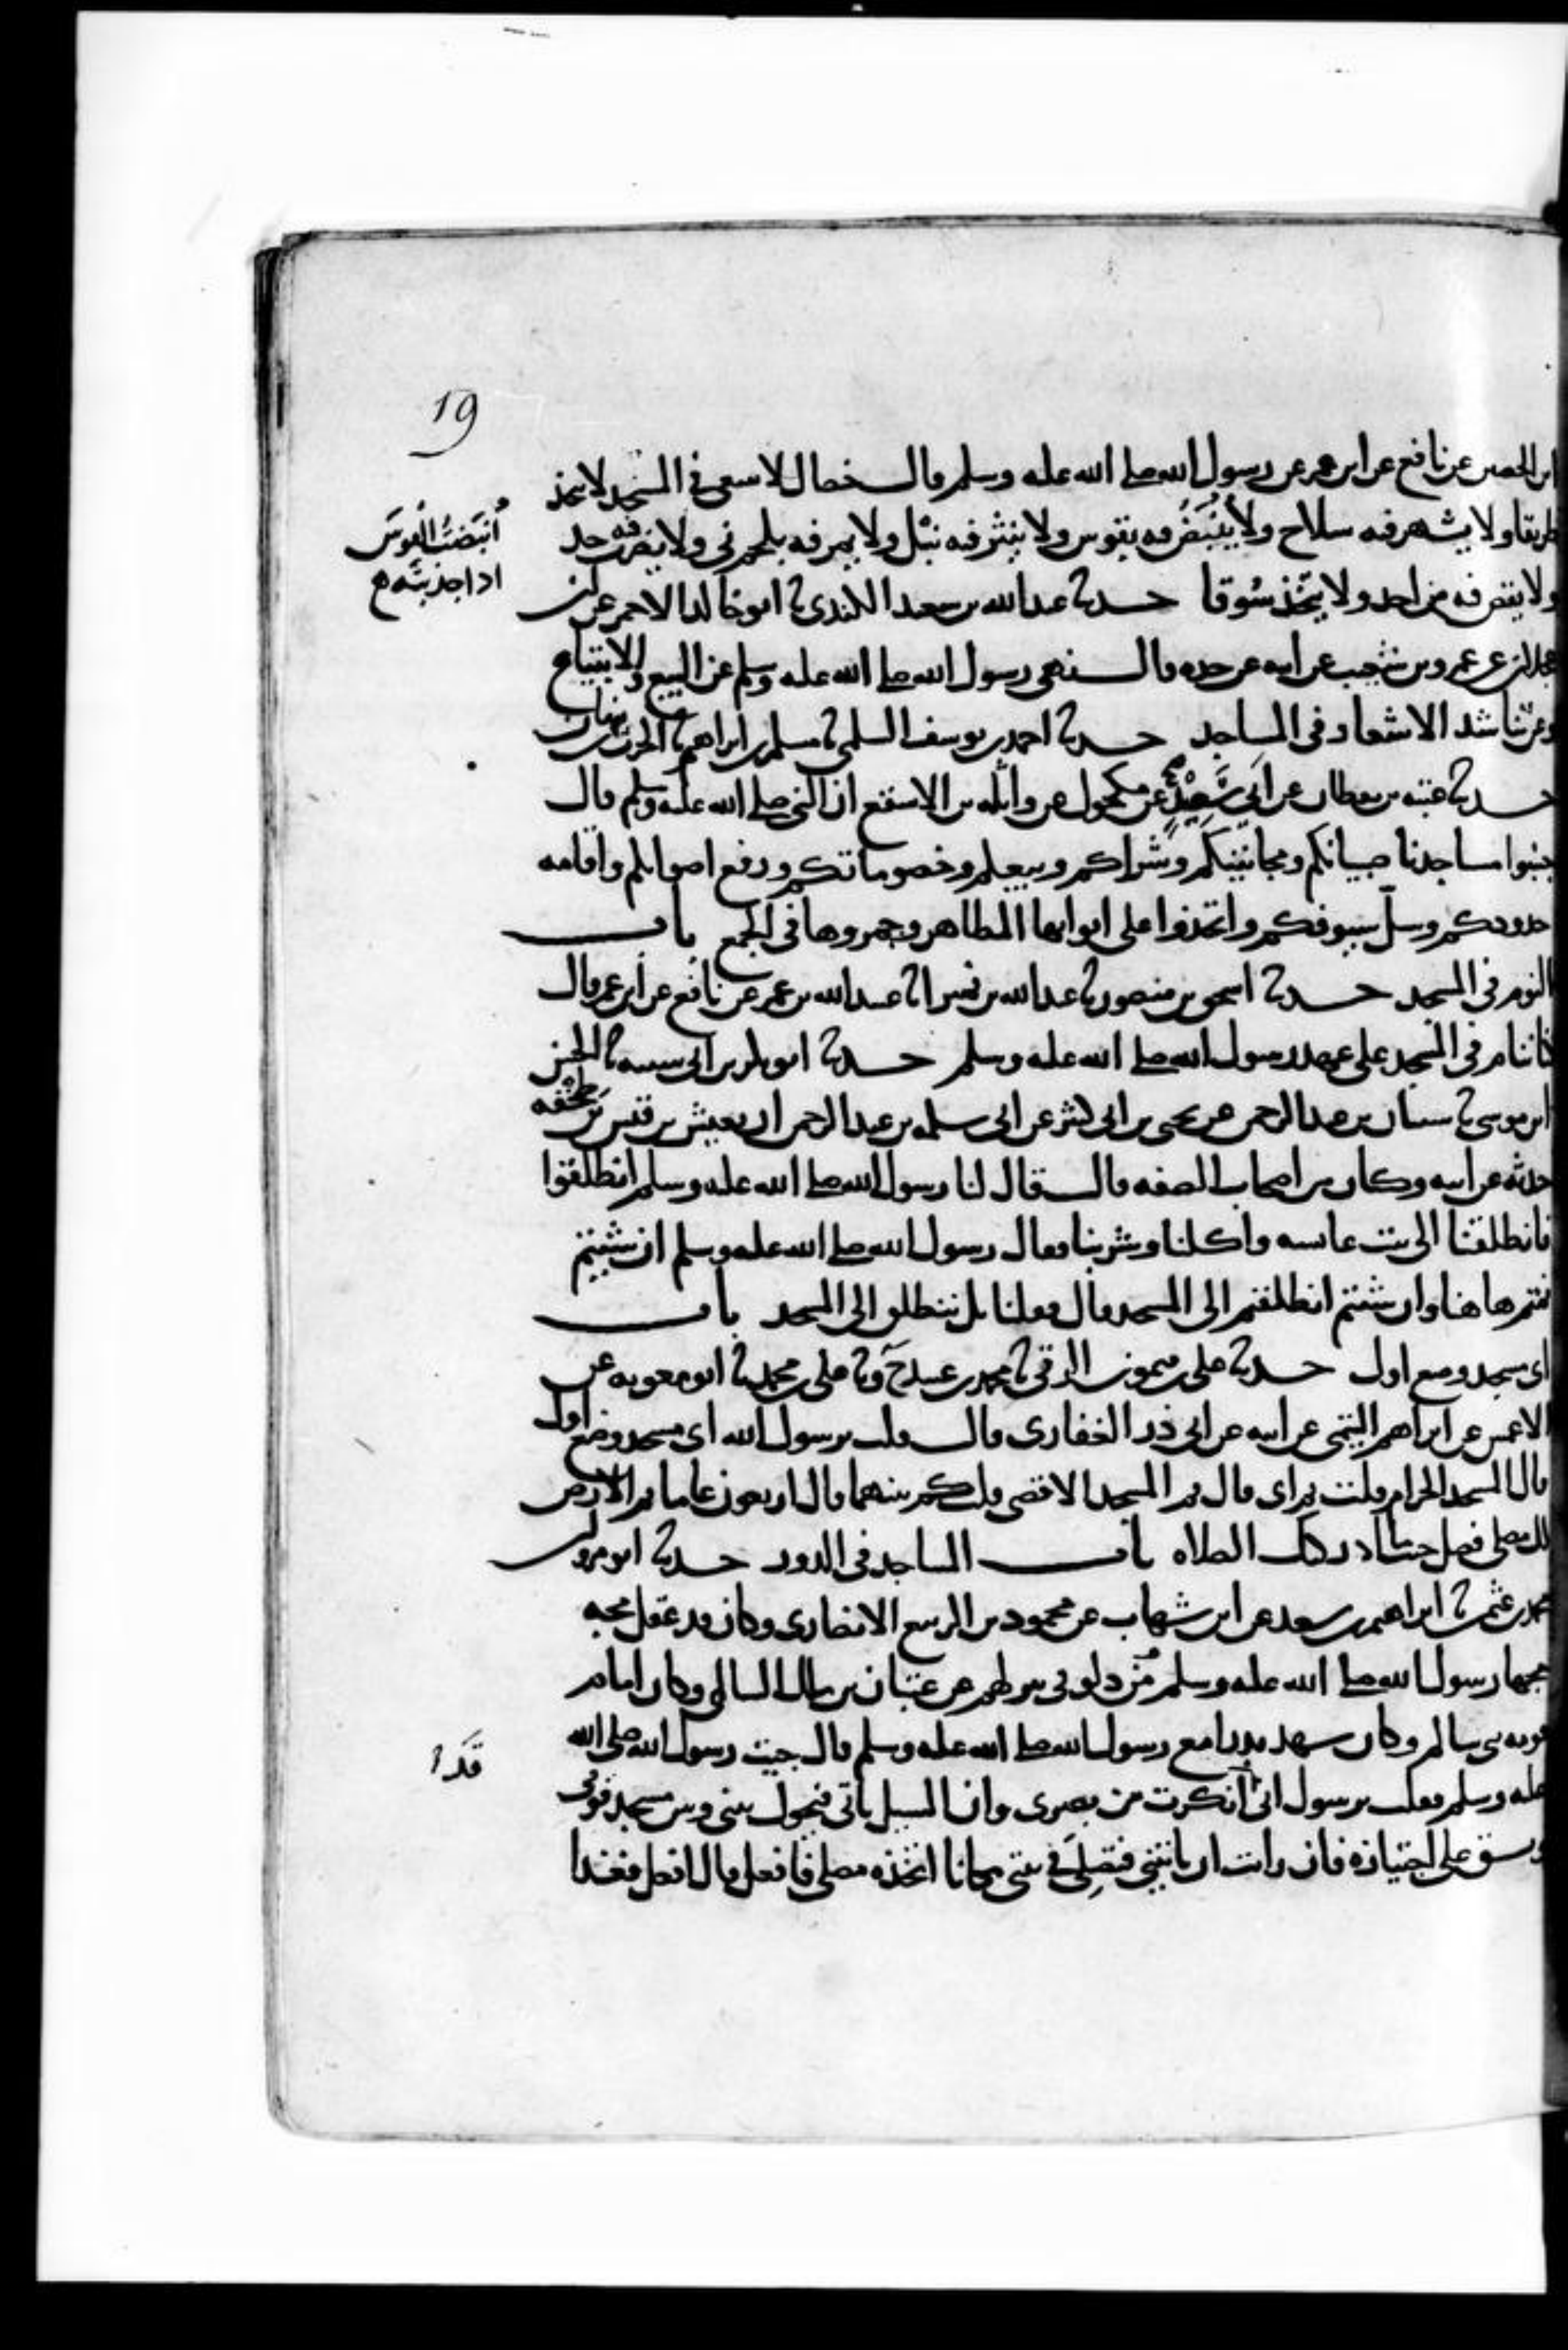 19
ابن الحصين عن نافع عن ابن عمر عن رسول الله صلى الله عليه وسلم قال خصال لا تنبغي في المسجد لا يتخذ
طريقا ولا يشهر فيه سلاح ولا يُنبَضُ فيه بقوس ولا ينثر فيه نبْل ولا يمر فيه بلحم ني ولا يضرب فيه حد
ولا يقتص فيه من احد ولا يتخذ سُوقا حدثنا عبد الله بن سعيد الكندي ثنا ابو خالد الاحمر عن ابن
عجلان عن عمرو بن شعيب عن ابيه عن جده قال نهى رسول الله صلى الله عليه وسلم عن البيع والابتياع
وعن تناشد الاشعار في المساجد حدثنا احمد بن يوسف السلمي ثنا مسلم بن ابراهيم ثنا الحرث بن نبهان
حدثنا عتبة بن يقظان عن ابي سَعِيْدٍ عن مكحول عن واثلة بن الاسقع ان النبي صلى الله عليه وسلم قال
جنبوا مساجدنا صبيانكم ومجانينكم وشراكم وبيعكم وخصوماتكم ورفع اصواتكم واقامه
حدودكم وسلّ سيوفكم واتخذوا على ابوابها المطاهر وجمروها في الجمع باب
النوم في المسجد حدثنا اسحق بن منصور ثنا عبد الله بن نمير انا عبيد الله بن عمر عن نافع عن ابن عمر قال
كنا ننام في المسجد على عهد رسول الله صلى الله عليه وسلم حدثنا ابو بكر بن ابي شيبه ثنا الحسن
ابن موسى ثنا شيبان بن عبد الرحمن عن يحيى بن ابي كثير عن ابي سلمه بن عبد الرحمن ان يعيش بن قيس بن طِخْفه
حدثه عن ابيه وكان من اصحاب الصفه قال قال لنا رسول الله صلى الله عليه وسلم انطلقوا
فانطلقنا الى بيت عايشه واكلنا وشربنا فقال رسول الله صلى الله عليه وسلم ان شيتم
نمتم هاهنا وان شئتم انطلقتم الى المسجد قال فقلنا بل ننطلق الى المسجد باب
اي مسجد وضع اول حدثنا علي بن ميمون الرقي ثنا محمد بن عبيد ح وثنا علي بن محمد ثنا ابو معويه عن
الاعمش عن ابراهيم التيمي عن ابيه عن ابي ذر الغفاري قال قلت يرسول الله اي مسجد وضع اول
قال المسجد الحرام قلت ثم اي قال ثم المسجد الاقصى قلت كم بينهما قال اربعون عاما ثم الارض
لك مصلى فصل حيث ادركتك الصلاه باب المساجد في الدور حدثنا ابو مروان
محمد بن عثمن ثنا ابراهيم بن سعد عن ابن شهاب عن محمود بن الربيع الانصاري وكان قد عقل مجه
مجها رسول الله صلى الله عليه وسلم من دلو في بير لهم عن عتبان بن مالك السالمي وكان امام
قومه بني سالم وكان شهد بدرا مع رسول الله صلى الله عليه وسلم قال جيت رسول الله صلى الله
عليه وسلم فقلت يرسول اني انكرت من بصري وان السيل ياتي فيحول بيني وبين مسجد قومي
ويشق علي اجتيازه فان رايت ان تاتيني فتصلِيَ في بيتي مكانا اتخذه مصلى فافعل قال افعل فغدا
أنبَضتُ القوسَ
اذا جذبته
قَد